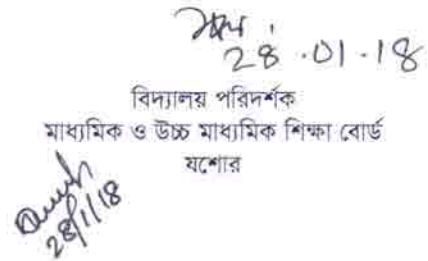 28.01.18
বিদ্যালয় পরিদর্শক
মাধ্যমিক ও উচ্চ মাধ্যমিক শিক্ষা বোর্ড
যশোর
28/1/18